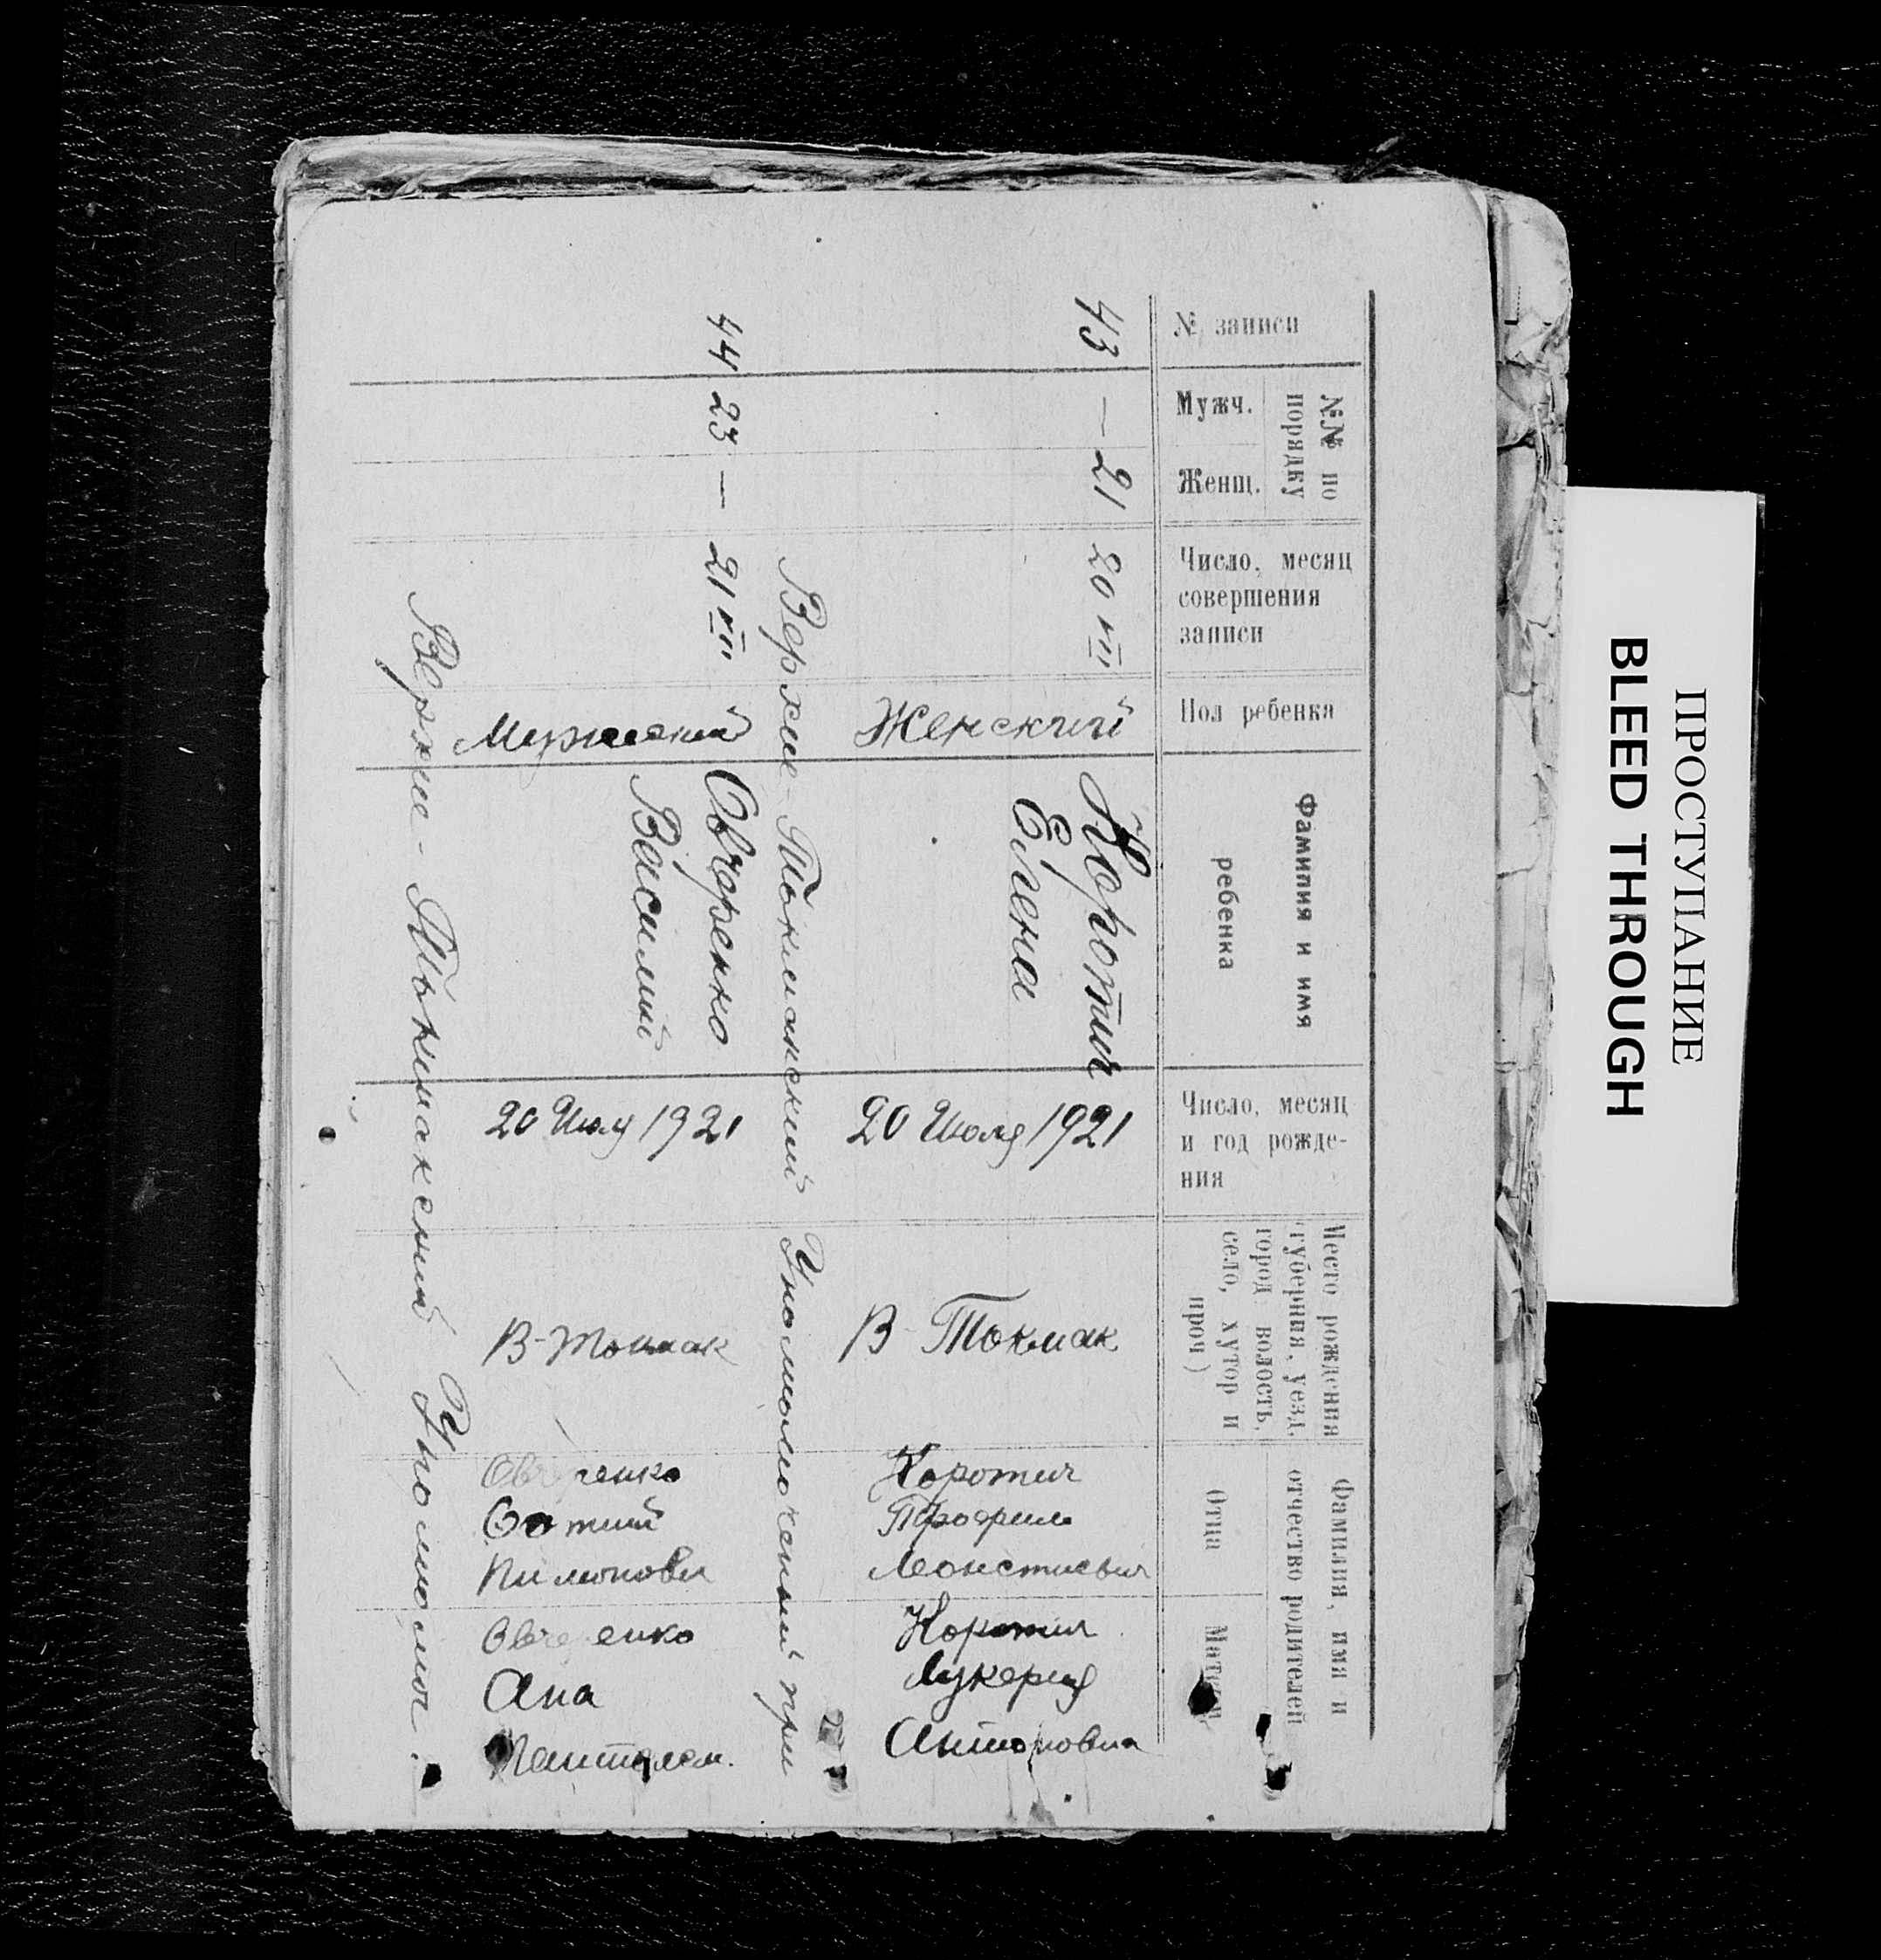 № записи
№№ по
порядку
Мужч.
Женщ.
Число, месяц
совершения
записи
Пол ребенка
Фамилия и имя
ребенка
Число, месяц
и год рожде-
ния
Место рождения
(губерния, уезд,
город волость,
село, хутор и
проч)
Фамилия, имя и
отчество родителей
Отца
Матери
43
—
21
20 VII
Женский
Коротич
Елена
20 Июля 1921
В-Токмак
Коротич
Трофим
Коротич
Лукерия
Антоновна
Верхне-Токмакский Уполномоченный при
44
23
—
21 VII
Мужеский
Овчаренко
Василий
20 Июля 1921
В-Токмак
Овчаренко
Овчаренко
Ана
Пантелем.
Верхне-Токмакский Уполномоч.
ПРОСТУПАНИЕ
BLEED THROUGH